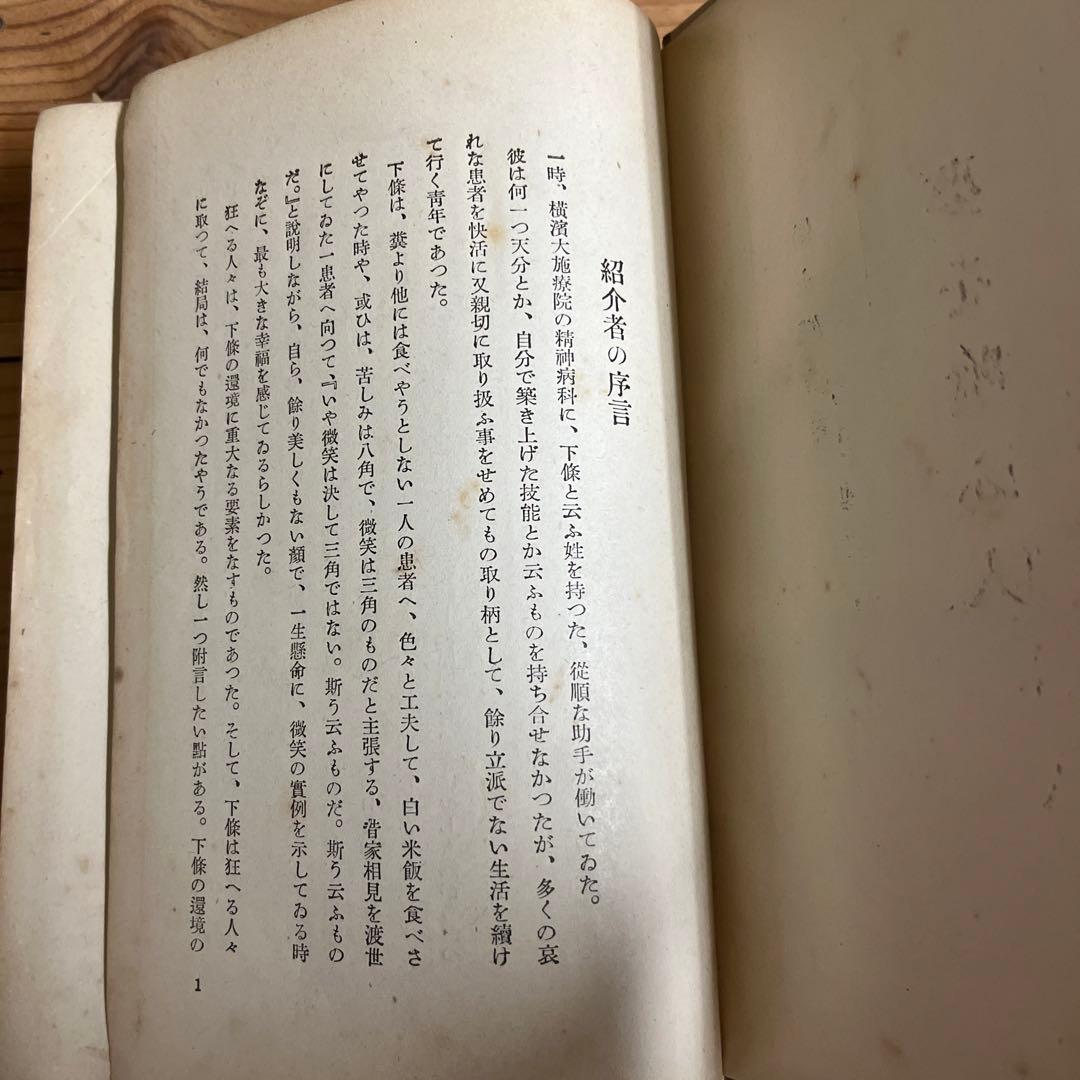 紹介者の序言
一時、橫濱大施療院の精神病科に、下條と云ふ姓を持つた、從順な助手が働いてゐた。
彼は何一つ天分とか、自分で築き上げた技能とか云ふものを持ち合せなかつたが、多くの哀
れな患者を快活に又親切に取り扱ふ事をせめてもの取り柄として、餘り立派でない生活を續け
て行く靑年であつた。
下條は、糞より他には食べやうとしない一人の患者へ、色々と工夫して、白い米飯を食べさ
せてやつた時や、或ひは、苦しみは八角で、微笑は三角のものだと主張する、昔家相見を渡世
にしてゐた一患者へ向つて、『いや微笑は決して三角ではない。斯う云ふものだ。斯う云ふもの
だ。』と說明しながら、自ら、餘り美しくもない顏で、一生懸命に、微笑の實例を示してゐる時
なぞに、最も大きな幸福を感じてゐるらしかつた。
狂へる人々は、下條の還境に重大なる要素をなすものであつた。そして、下條は狂へる人々
に取つて、結局は、何でもなかつたやうである。然し一つ附言したい點がある。下條の還境の
1